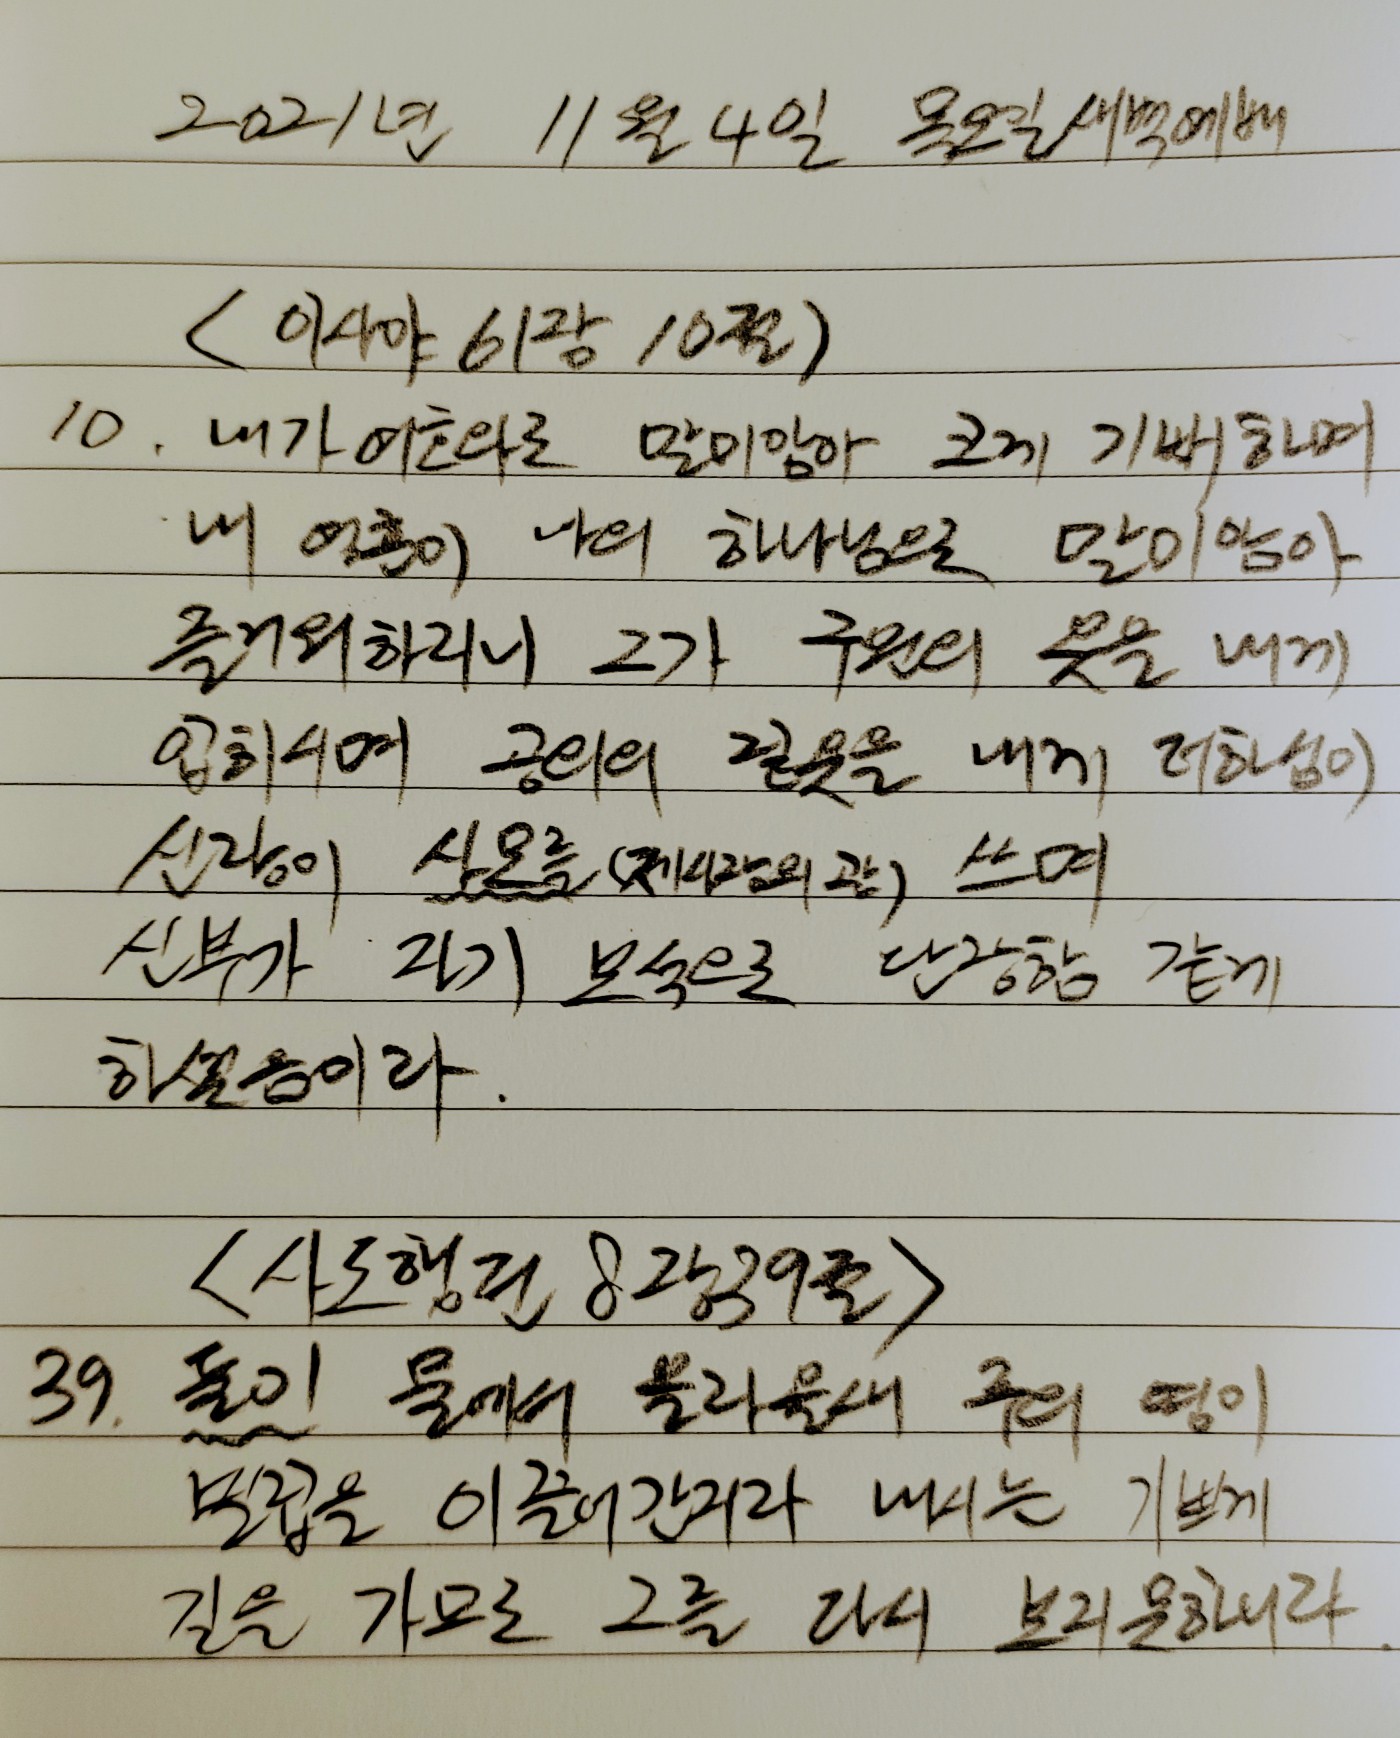 2021년 11월 4일 목요일새벽예배
< 이사야 61장 10절 )
10. 내가여호와로 말미암아 크게 기뻐하며
내 영혼이 나의 하나님으로 말미암아
즐거워하리니 그가 구원의 옷을 내게
입히시며 공의의 겉옷을 내게 더하심이
신랑이 사모를 (제사장의 관) 쓰며
신부가 자기 보석으로 단장함 같게
하셨음이라.
<사도행전 8장39절>
39. 둘이 물에서 올라올새 주의 영이
빌립을 이끌어간지라 내시는 기쁘게
길을 가므로 그를 다시 보지못하니라.